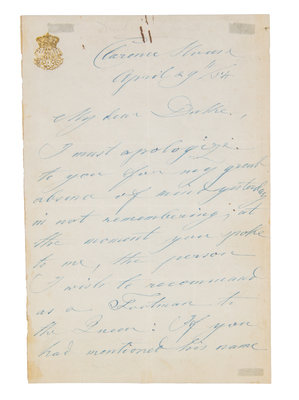 Clarence House
April 29th/54
My dear Duke,
I must apologize
to you for my great
absence of mind yesterday
in not remembering; at
the moment you spoke
to me, the person
I wish to recommend
as a Footman to
the Queen: If you
had mentioned his name